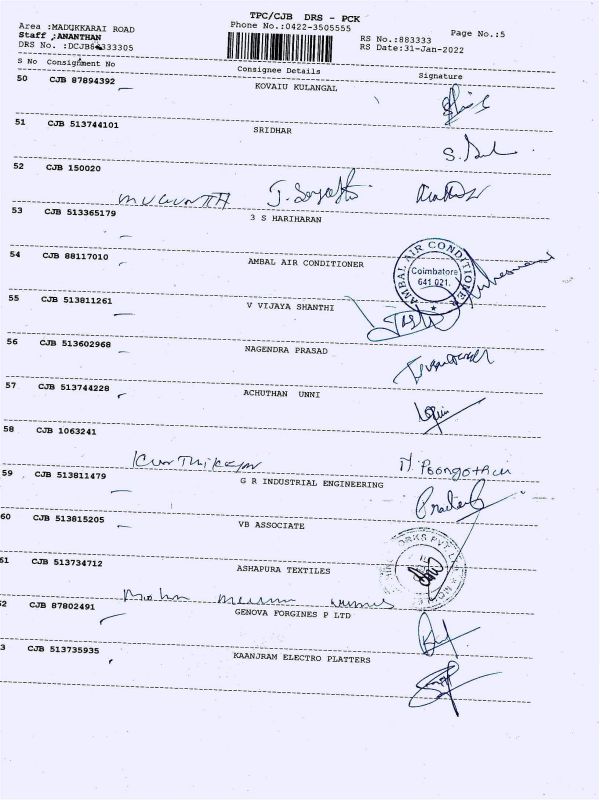 TPC/CJB DRS - PCK
Area :MADUKKARAI ROAD Phone No.:0422-3505555 Page No.:5
Staff :ANANTHAN RS No.:883333
DRS No. :DCJB84333305 RS Date:31-Jan-2022
S No Consignment No Consignee Details Signature
50 CJB 87894392 KOVAIU KULANGAL
51 CJB 513744101 SRIDHAR
S.
52 CJB 150020
53 CJB 513365179 3 S HARIHARAN
54 CJB 88117010 AMBAL AIR CONDITIONER
AMBAL AIR CONDITIONER
Coimbatore
641 021.
55 CJB 513811261 V VIJAYA SHANTHI
56 CJB 513602968 NAGENDRA PRASAD
57 CJB 513744228 ACHUTHAN UNNI
58 CJB 1063241
M. Poongothai
59 CJB 513811479 G R INDUSTRIAL ENGINEERING
60 CJB 513815205 VB ASSOCIATE
61 CJB 513734712 ASHAPURA TEXTILES
Mohan
62 CJB 87802491 GENOVA FORGINES P LTD
3 CJB 513735935 KAANJRAM ELECTRO PLATTERS